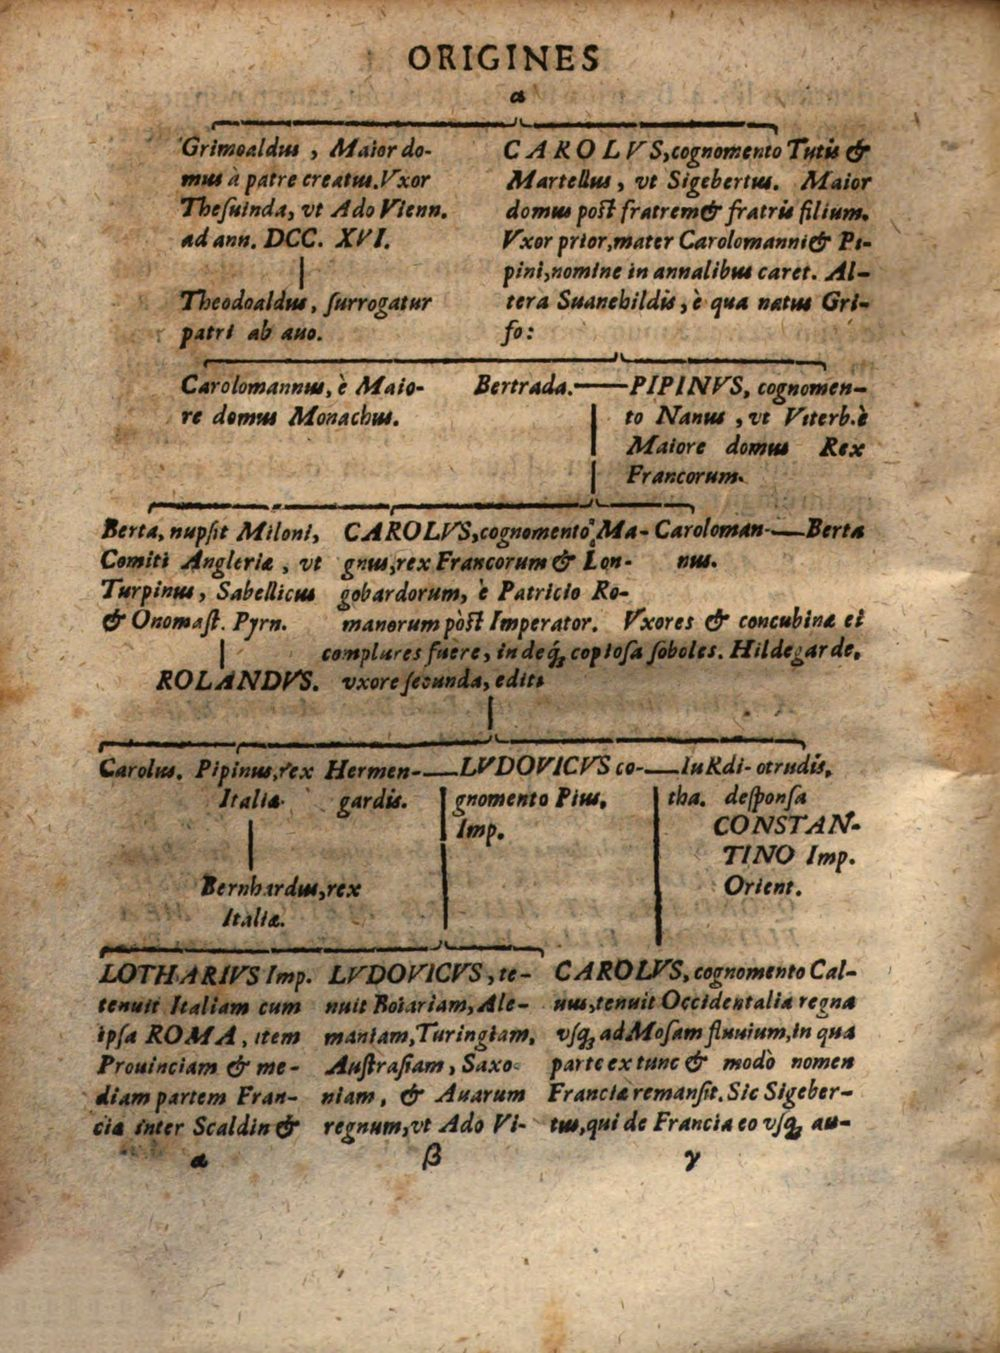 ORIGINES
α
Grimoaldus, Maior do-
mus à patre creatus. Vxor
Thesuinda, vt Ado Vienn.
ad ann. DCC. XVI.
Theodoaldus, surrogatur
patri ab auo.
CAROLVS, cognomento Tutis &
Martellus, vt Sigebertus. Maior
domus post fratrem & fratris filium.
Vxor prior, mater Carolomanni & Pi-
pini, nomine in annalibus caret. Al-
tera Suanehildis, è qua natus Gri-
fo:
Carolomannus, è Maio-
re domus Monachus.
Bertrada. PIPINVS, cognomen-
to Nanus, vt Viterb. è
Maiore domus Rex
Francorum.
Berta, nupsit Miloni,
Comiti Angleriæ, vt
Turpinus, Sabellicus
& Onomast. Pyrn.
ROLANDVS.
CAROLVS, cognomento Ma-
gnus, rex Francorum & Lon-
gobardorum, è Patricio Ro-
manorum pòst Imperator. Vxores & concubinæ ei
complures fuere, indeq; copiosa soboles. Hildegarde,
vxore secunda, editi
Caroloman- Berta
nus.
Carolus. Pipinus, rex
Italiæ
Bernhardus, rex
Italiæ.
Hermen- LVDOVICVS co- IuRdi- otrudis,
gardis. gnomento Pius, tha. desponsa
Imp. CONSTAN-
TINO Imp.
Orient.
LOTHARIVS Imp.
tenuit Italiam cum
ipsa ROMA, item
Prouinciam & me-
diam partem Fran-
ciæ inter Scaldin &
α
LVDOVICVS, te-
nuit Boiariam, Ale-
maniam, Turingiam,
Austrasiam, Saxo-
niam, & Auarum
regnum, vt Ado Vi-
β
CAROLVS, cognomento Cal-
uus, tenuit Occidentalia regna
vsq; ad Mosam fluuium, in qua
parte ex tunc & modò nomen
Franciæ remansit. Sic Sigeber-
tus, qui de Francia eo vsq; au-
γ